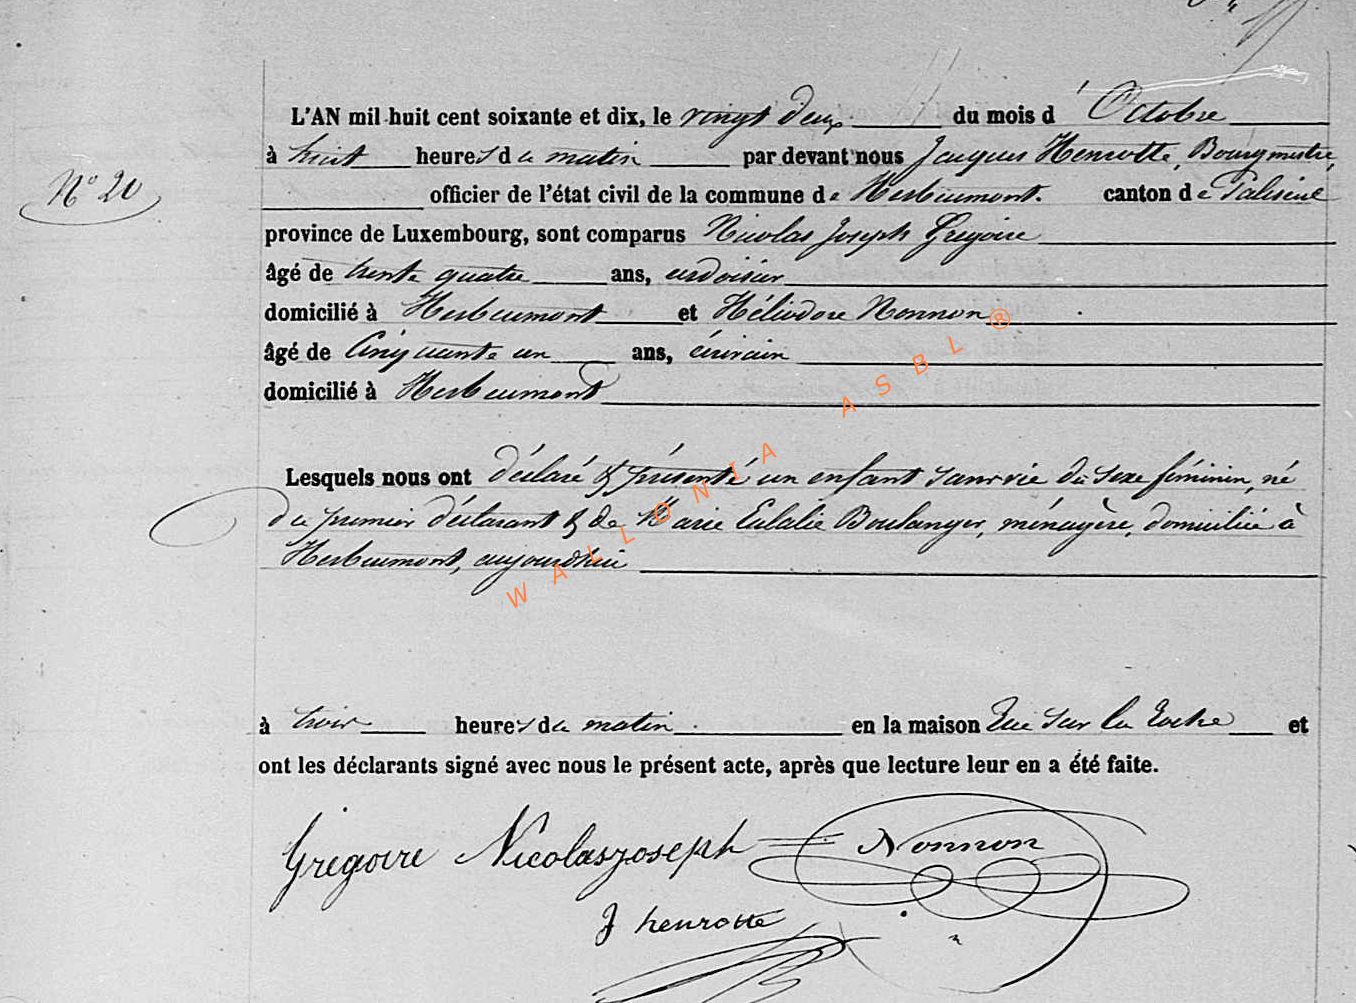 L'AN mil huit cent soixante et dix, le vingt deux du mois d'Octobre
à huit heures du matin par devant nous Jacques Henrotte, Bourgmestre,
N° 20
officier de l'état civil de la commune de Herbeumont. canton de Paliseul
province de Luxembourg, sont comparus Nicolas Joseph Grégoire
âgé de trente quatre ans, ardoisier
domicilié à Herbeumont et Héliodore Nonnon
âgé de Cinquante un ans, écrivain
domicilié à Herbeumont
Lesquels nous ont déclaré & présenté un enfant sans vie du sexe féminin, né
du premier déclarant & de Marie Eulalie Boulanger, ménagère, domiciliée à
Herbeumont, aujourd'hui
WALLONIA ASBL®
à trois heures du matin en la maison Rue Sur la Roche et
ont les déclarants signé avec nous le présent acte, après que lecture leur en a été faite.
Grégoire Nicolas joseph Nonnon
J henrotte